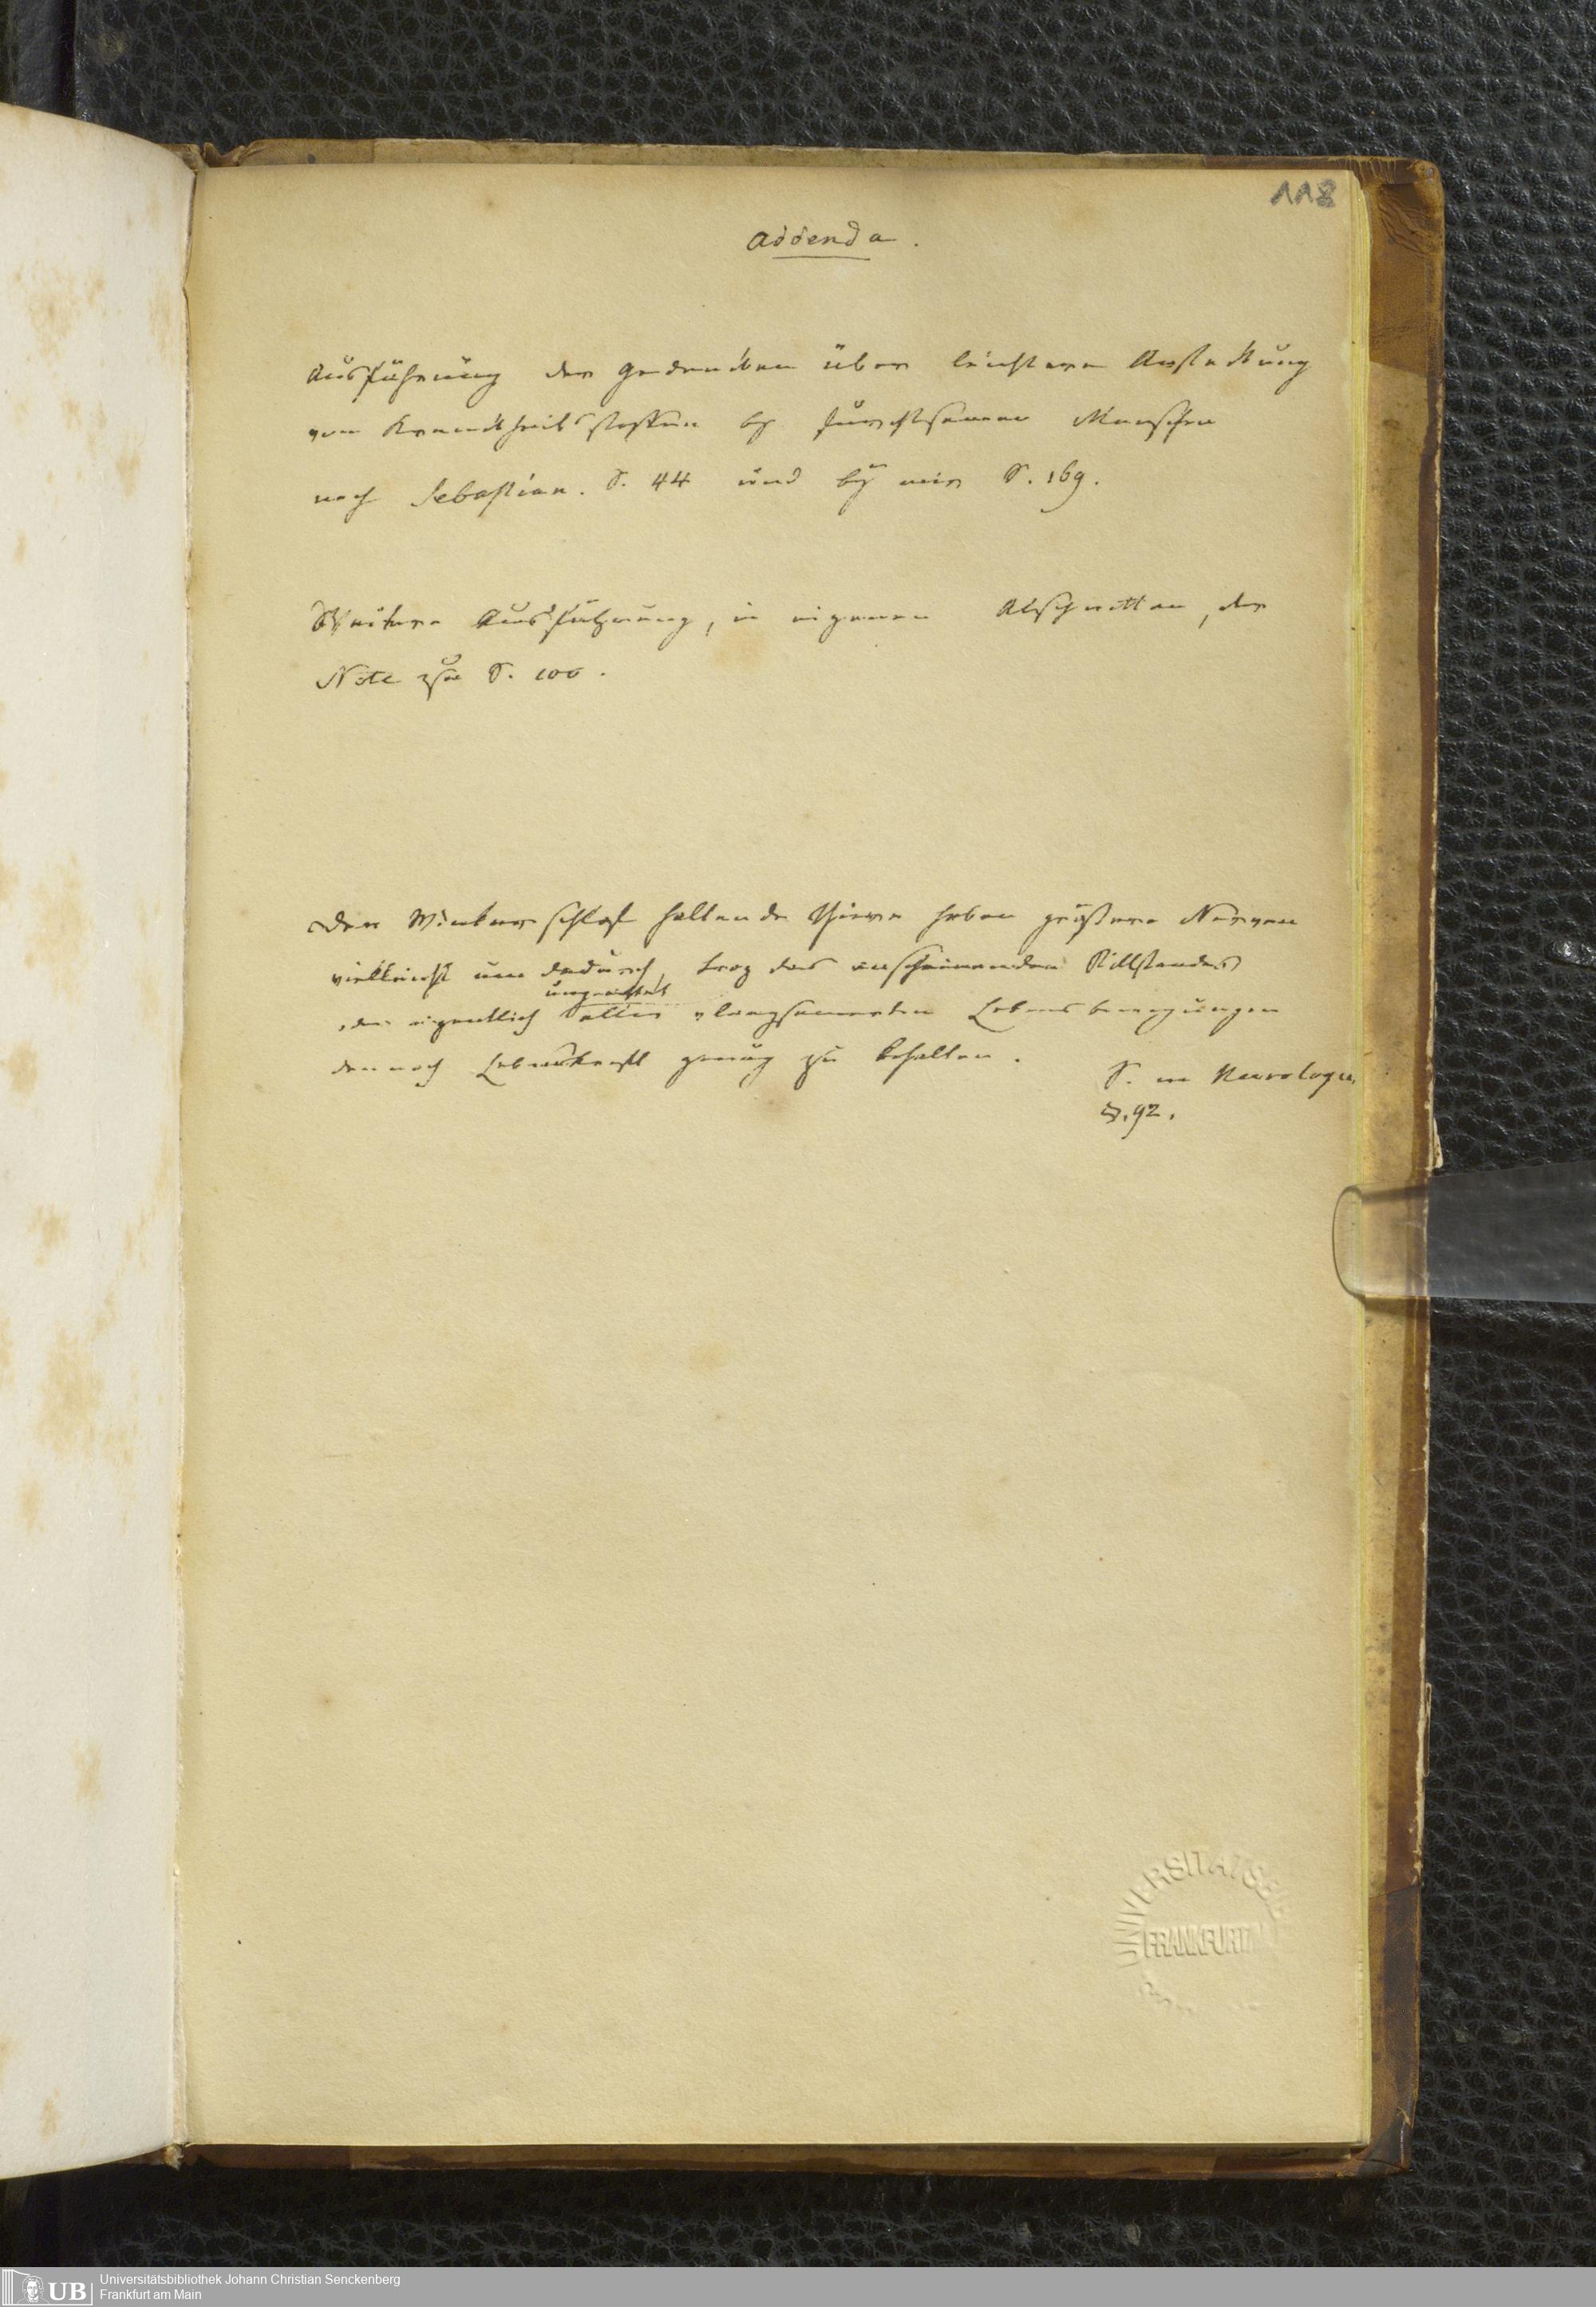 118
Addenda.
Ausführung des Gedanken über leichtere Ansteckung
von Krankheitsstoffen by furchtsamen Menschen
nach Sebastian. S. 44 und bÿ mir S. 169.
Weitere Ausführung, in eigenen Abschnitten, der
Note zu S. 100.
Den Winterschlaf haltende Thiere haben größere Nerven
vielleicht um dadurch, troz des anscheinenden Stillstandes
ungeachtet
eigentlich aller Lebensbewegungen
dennoch Lebenskraft genug zu behalten.
S. m Neurologie
§. 92.
UNIVERSITÄTS
FRANKFURT
UB
Universitätsbibliothek Johann Christian Senckenberg
Frankfurt am Main